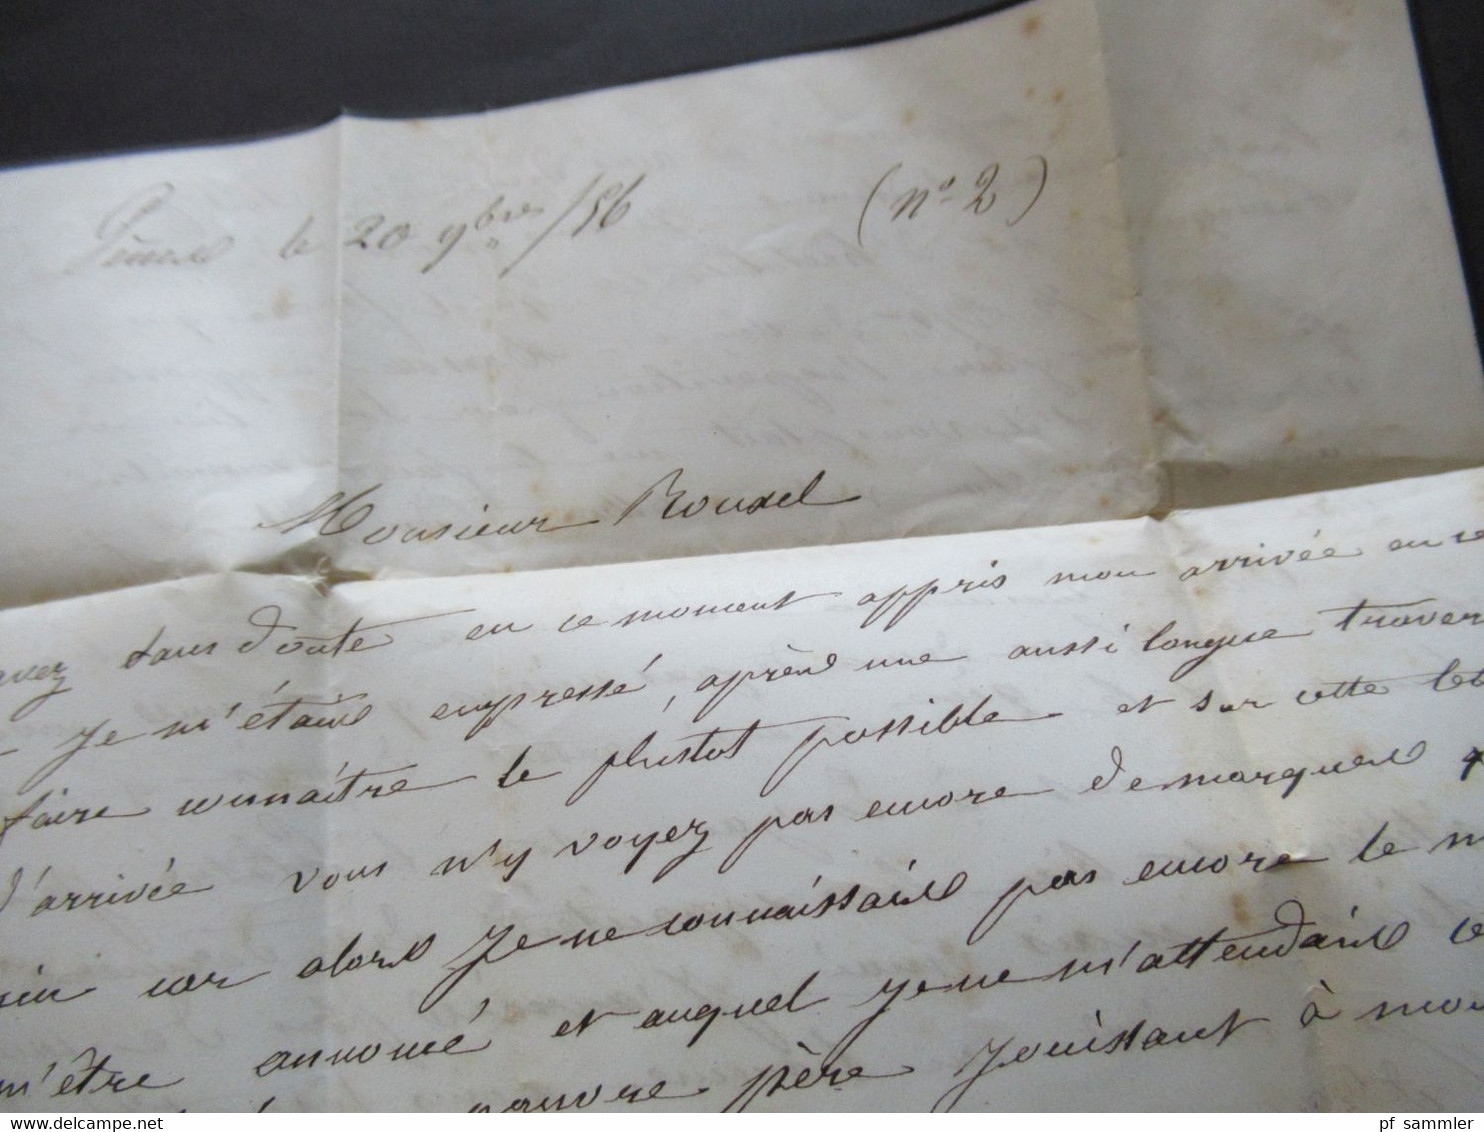 Gênes le 20 9bres /56 (n° 2)
Monsieur Rousel
avez sans doute en ce moment appris mon arrivée en ce
Je m'étais empressé, après une aussi longue traver
faire connaître le plustot possible et sur cette let
d'arrivée vous n'y voyez pas encore de marques
car alors Je ne connaissais pas encore le m
m'être annoncé et auquel Je ne m'attendais
pauvre père Jouissant à mon
www.delcampe.net
pf_sammler